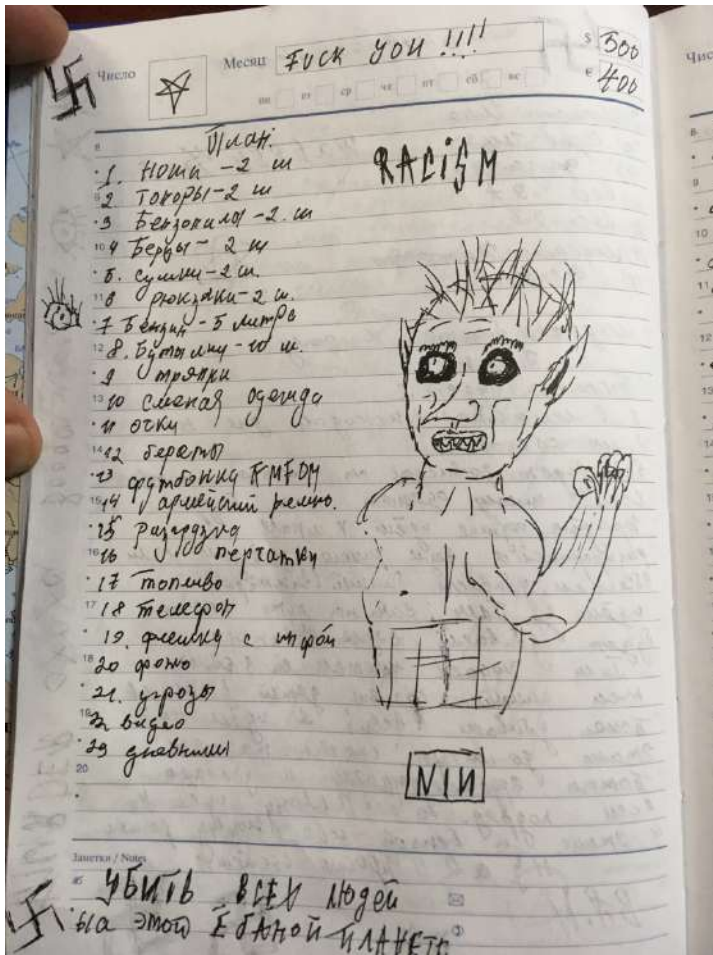 Число
Месяц FUCK YOU !!!!
$ 500
€ 400
пн вт ср чт пт сб вс
План.
RACISM
1. Ножи - 2 ш
2 Топоры - 2 ш
3 Бензопилы - 2 ш
4 Берцы - 2 ш
5. Сумки - 2 ш.
6 рюкзаки - 2 ш.
7 Бензин - 5 литров
8. Бутылки - 10 ш.
9 тряпки
10 сменая одежда
11 очки
12 береты
13 футболки KMFDM
14 армейский ремно.
15 разгрузка
16 перчатки
17 топливо
18 телефон
19. флешка с инфой
20 фото
21. угрозы
22 видео
23 дневники
NIN
Заметки / Notes
УБИТЬ ВСЕХ ЛЮДЕЙ
НА ЭТОЙ ЁБАНОЙ ПЛАНЕТЕ